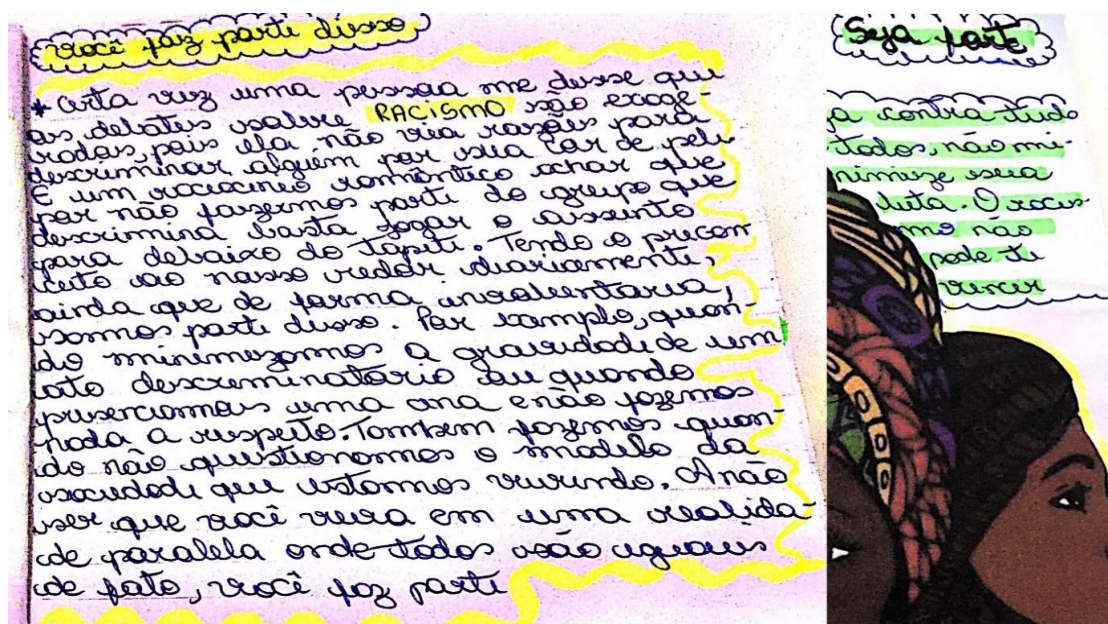 você faz parte disso
* Certa vez uma pessoa me disse que
os debates sobre RACISMO são exage-
rados, pois ela não via razões para
descriminar alguém por sua cor de pele.
É um raciocinio romântico achar que
por não fazermos parte do grupo que
descrimina basta jogar o assunto
para debaixo do tapete. Tendo o precon
ceito ao nosso redor diariamente,
ainda que de forma involuntária,
somos parte disso. Por exemplo, quan-
do minimizamos a gravidade de um
ato descriminatório ou quando
presenciamos uma cena e não fazemos
nada a respeito. Também fazemos quan-
do não questionamos o modelo da
sociedade que estamos vivendo. A não
ser que você viva em uma realida-
de paralela onde todos são iguais
de fato, você faz parte
Seja forte
a contra tudo
todos, não mi-
nimize sua
luta. O racis-
mo não
pode te
vencer